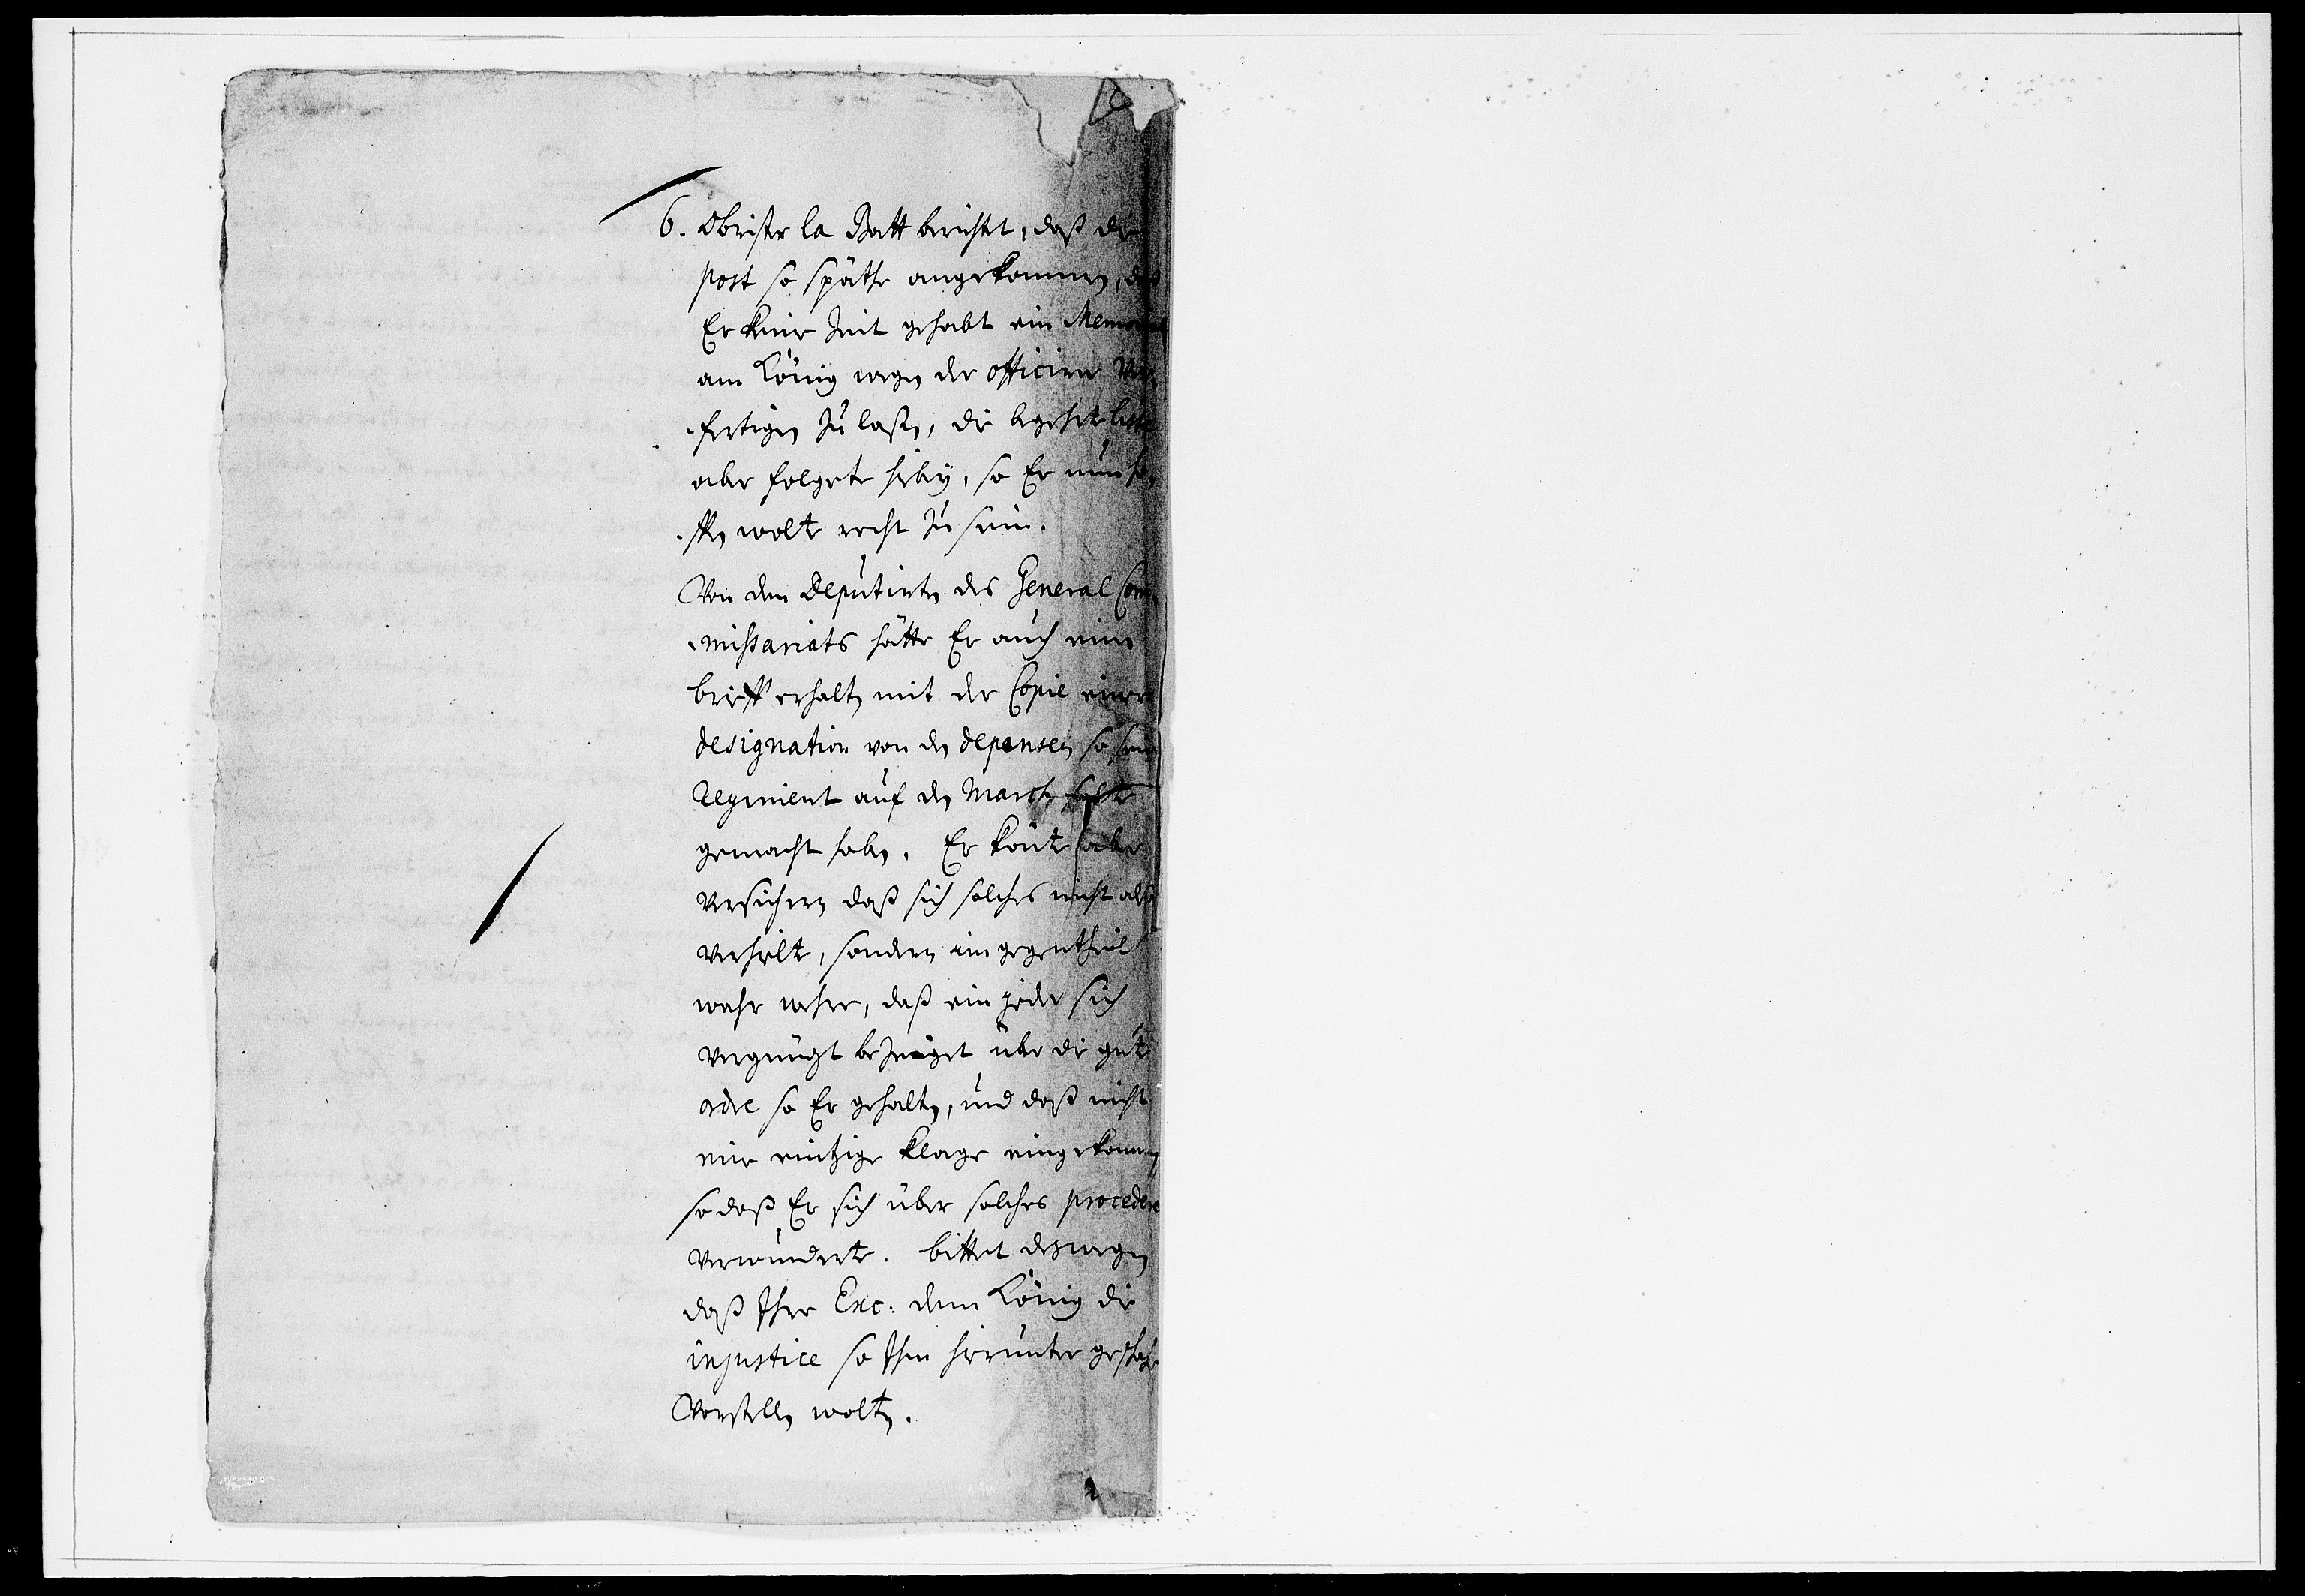 6. Obrister la Batt berichtet, daß die
post so späthe angekommen, daß
Er keine Zeit gehabt ein Memorial
am König wegen der officirer Ver-
-fertigen zu laßen, die begehrte liste
aber folgete hirbey, so Er nun ho-
-ffen wolte recht zu sein.
Von dem Deputirten des General Com-
-missariats hätte Er auch einen
brieff erhalten mit der Copie einer
designation von den depensen so sein
Regiment auf den March solte
gemacht haben. Er könte aber
versichern daß sich solches nicht also
verhielt, sondern im gegentheil
wahr wehre, daß ein jeder sich
vergnügt bezeuget über die gute
ordre so Er gehalten, und daß nicht
eine eintzige klage eingekommen
so daß Er sich über solches procedere
verwunderte. bittet deswegen
daß Ihre Exc: dem König die
injustice so Ihm hierunter geschehe
Vorstellen wolten.